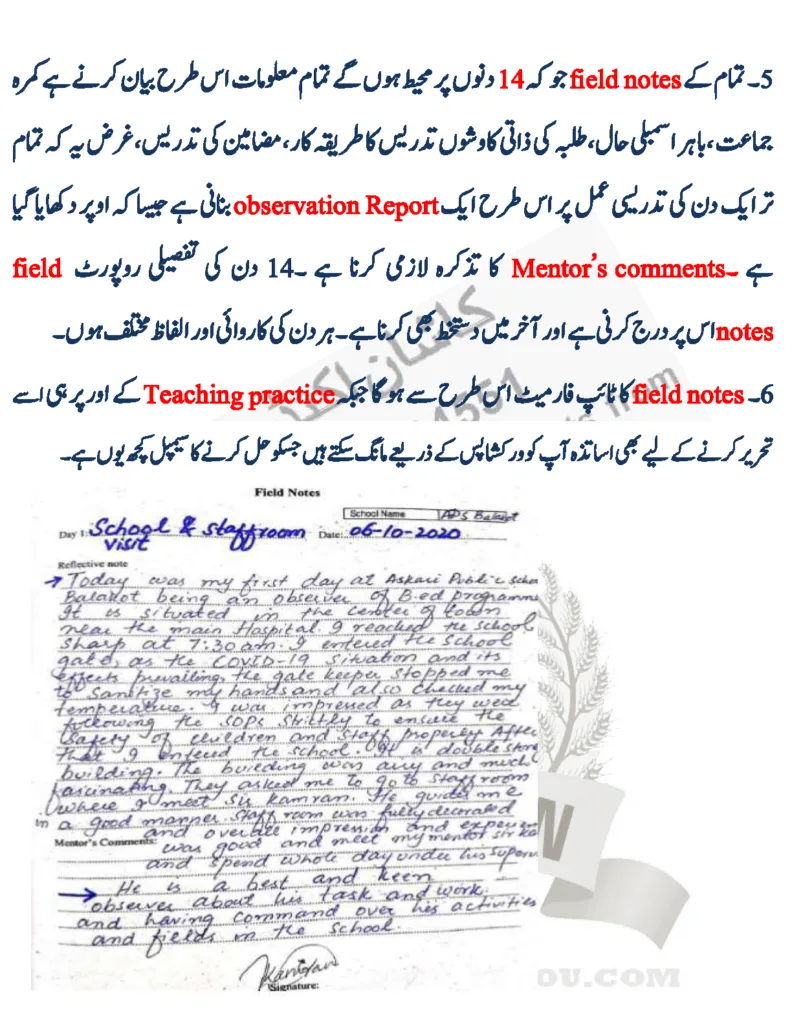 5۔ تمام کے field notes جو کہ 14 دنوں پر محیط ہوں گے تمام معلومات اس طرح بیان کرنے ہے کمرہ
جماعت، باہر اسمبلی حال، طلبہ کی ذاتی کاوشوں تدریس کا طریقہ کار، مضامین کی تدریس، غرض یہ کہ تمام
تر ایک دن کی تدریسی عمل پر اس طرح ایک observation Report بنانی ہے جیسا کہ اوپر دکھایا گیا
ہے ۔Mentor's comments کا تذکرہ لازمی کرنا ہے ۔14 دن کی تفصیلی روپورٹ field
notes اس پر درج کرنی ہے اور آخر میں دستخط بھی کرنا ہے۔ ہر دن کی کاروائی اور الفاظ مختلف ہوں۔
6۔ field notes کا ٹائپ فارمیٹ اس طرح سے ہو گا جبکہ Teaching practice کے اور پر ہی اسے
تحریر کرنے کے لیے بھی اساتذہ آپ کو ورکشاپس کے ذریعے مانگ سکتے ہیں جسکو حل کرنے کا سیمپل کچھ یوں ہے۔
Field Notes
School Name APS Balakot
Day 1: School & staffroom visit Date: 06-10-2020
Reflective note
Today was my first day at Askari Public Schoo
Balakot being an observer of B.ed programme
It is situated in the center of town
near the main Hospital. I reached the school
sharp at 7:30 am. I entered the school
gate, as the COVID-19 situation and its
effects prevailing, the gate keeper stopped me
to sanitize my hands and also checked my
temperature. I was impressed as they were
following the SOPs strictly to ensure the
safety of children and staff properly After
that I entered the school. It is double store
building. The building was any and much
fascinating. They asked me to go to staff room
where I meet Sir Kamran. He guides me
in a good manner. Staff room was fully decorated
and overall impression and experien
Mentor's Comments: was good and meet my mentor sir Ka
and spend whole day under his superv
He is a best and keen
observer about his task and work.
and having command over his activities
and fields in the school.
Kamran
Signature:
OU.COM